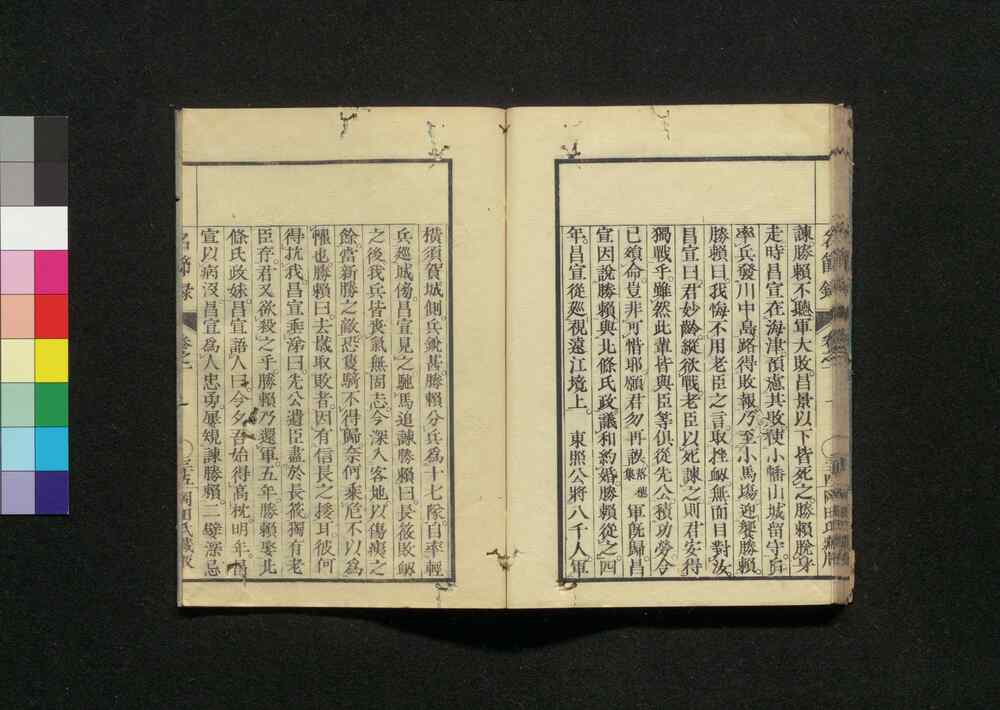 諫勝賴不聽軍大敗昌景以下皆死之勝賴脫身
走時昌宣在海津預慮其敗使小幡山城留守自
率兵發川中島路得敗報乃至小馬場迎饗勝賴
勝賴曰我悔不用老臣之言取挫衂無面目對汝
昌宣曰君妙齡縱欲戰老臣以死諫之則君安得
獨戰乎雖然此輩皆與臣等俱從先公積功勞今
已殞命豈非可惜耶願君勿再誤落穗集軍旣歸昌
宣因說勝賴與北條氏政議和約婚勝賴從之四
年昌宣從巡視遠江境上 東照公將八千人軍
名節錄 卷之一 三四 岡田氏藏版
橫須賀城側兵銳甚勝賴分兵爲十七隊自率輕
兵巡城傍昌宣見之馳馬追諫勝賴曰長篠敗衂
之後我兵皆喪氣無固志今深入客地以傷痍之
餘當新勝之敵恐隻騎不得歸奈何乘危不以爲
懼也勝賴曰去歲取敗者因有信長之援耳彼何
得抗我昌宣垂涕曰先公遺臣盡於長篠獨有老
臣存君又欲殺之乎勝賴乃還軍五年勝賴娶北
條氏政妹昌宣語人曰今夕吾始得高枕明年
宣以病沒昌宣爲人忠勇屢規諫勝賴二嬖深忌
名節錄 卷之一 三五 岡田氏藏版